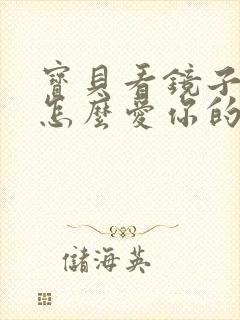 寶貝看鏡子
怎麼愛你的
儲海英